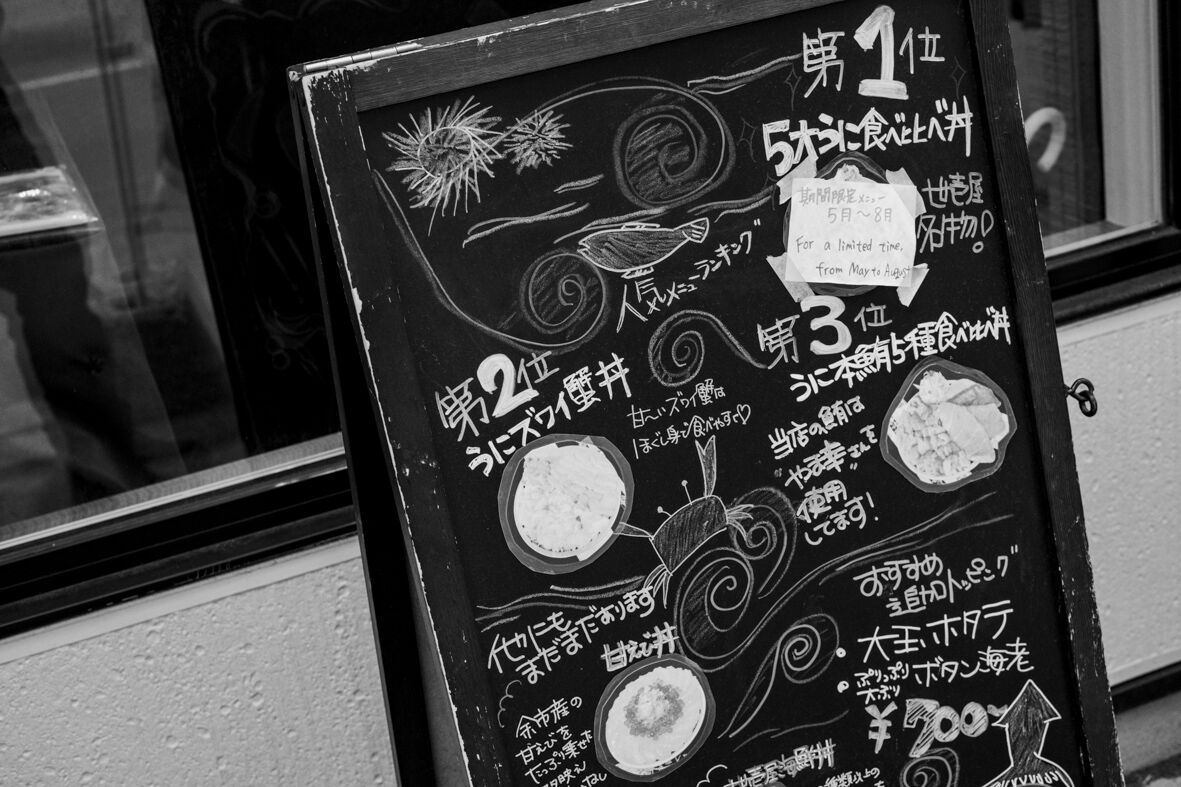 人気メニューランキング
第1位
5才うに食べ比べ丼
期間限定メニュー
5月〜8月
For a limited time,
from May to August
壱屋
名物!
第2位
うにズワイ蟹丼
甘〜いズワイ蟹は
ほぐし身で食べやすい♡
第3位
うに本鮪5種食べ比べ丼
当店の鮪は
"やま幸"さんを
使用
してます!
他にも
まだまだあります
甘えび丼
余市産の
甘えびを
たっぷり乗せた
おすすめ
追加トッピング
大玉ホタテ
ぷりっぷり
大ぶり
ボタン海老
¥700〜
壱屋海鮮丼
種類以上の